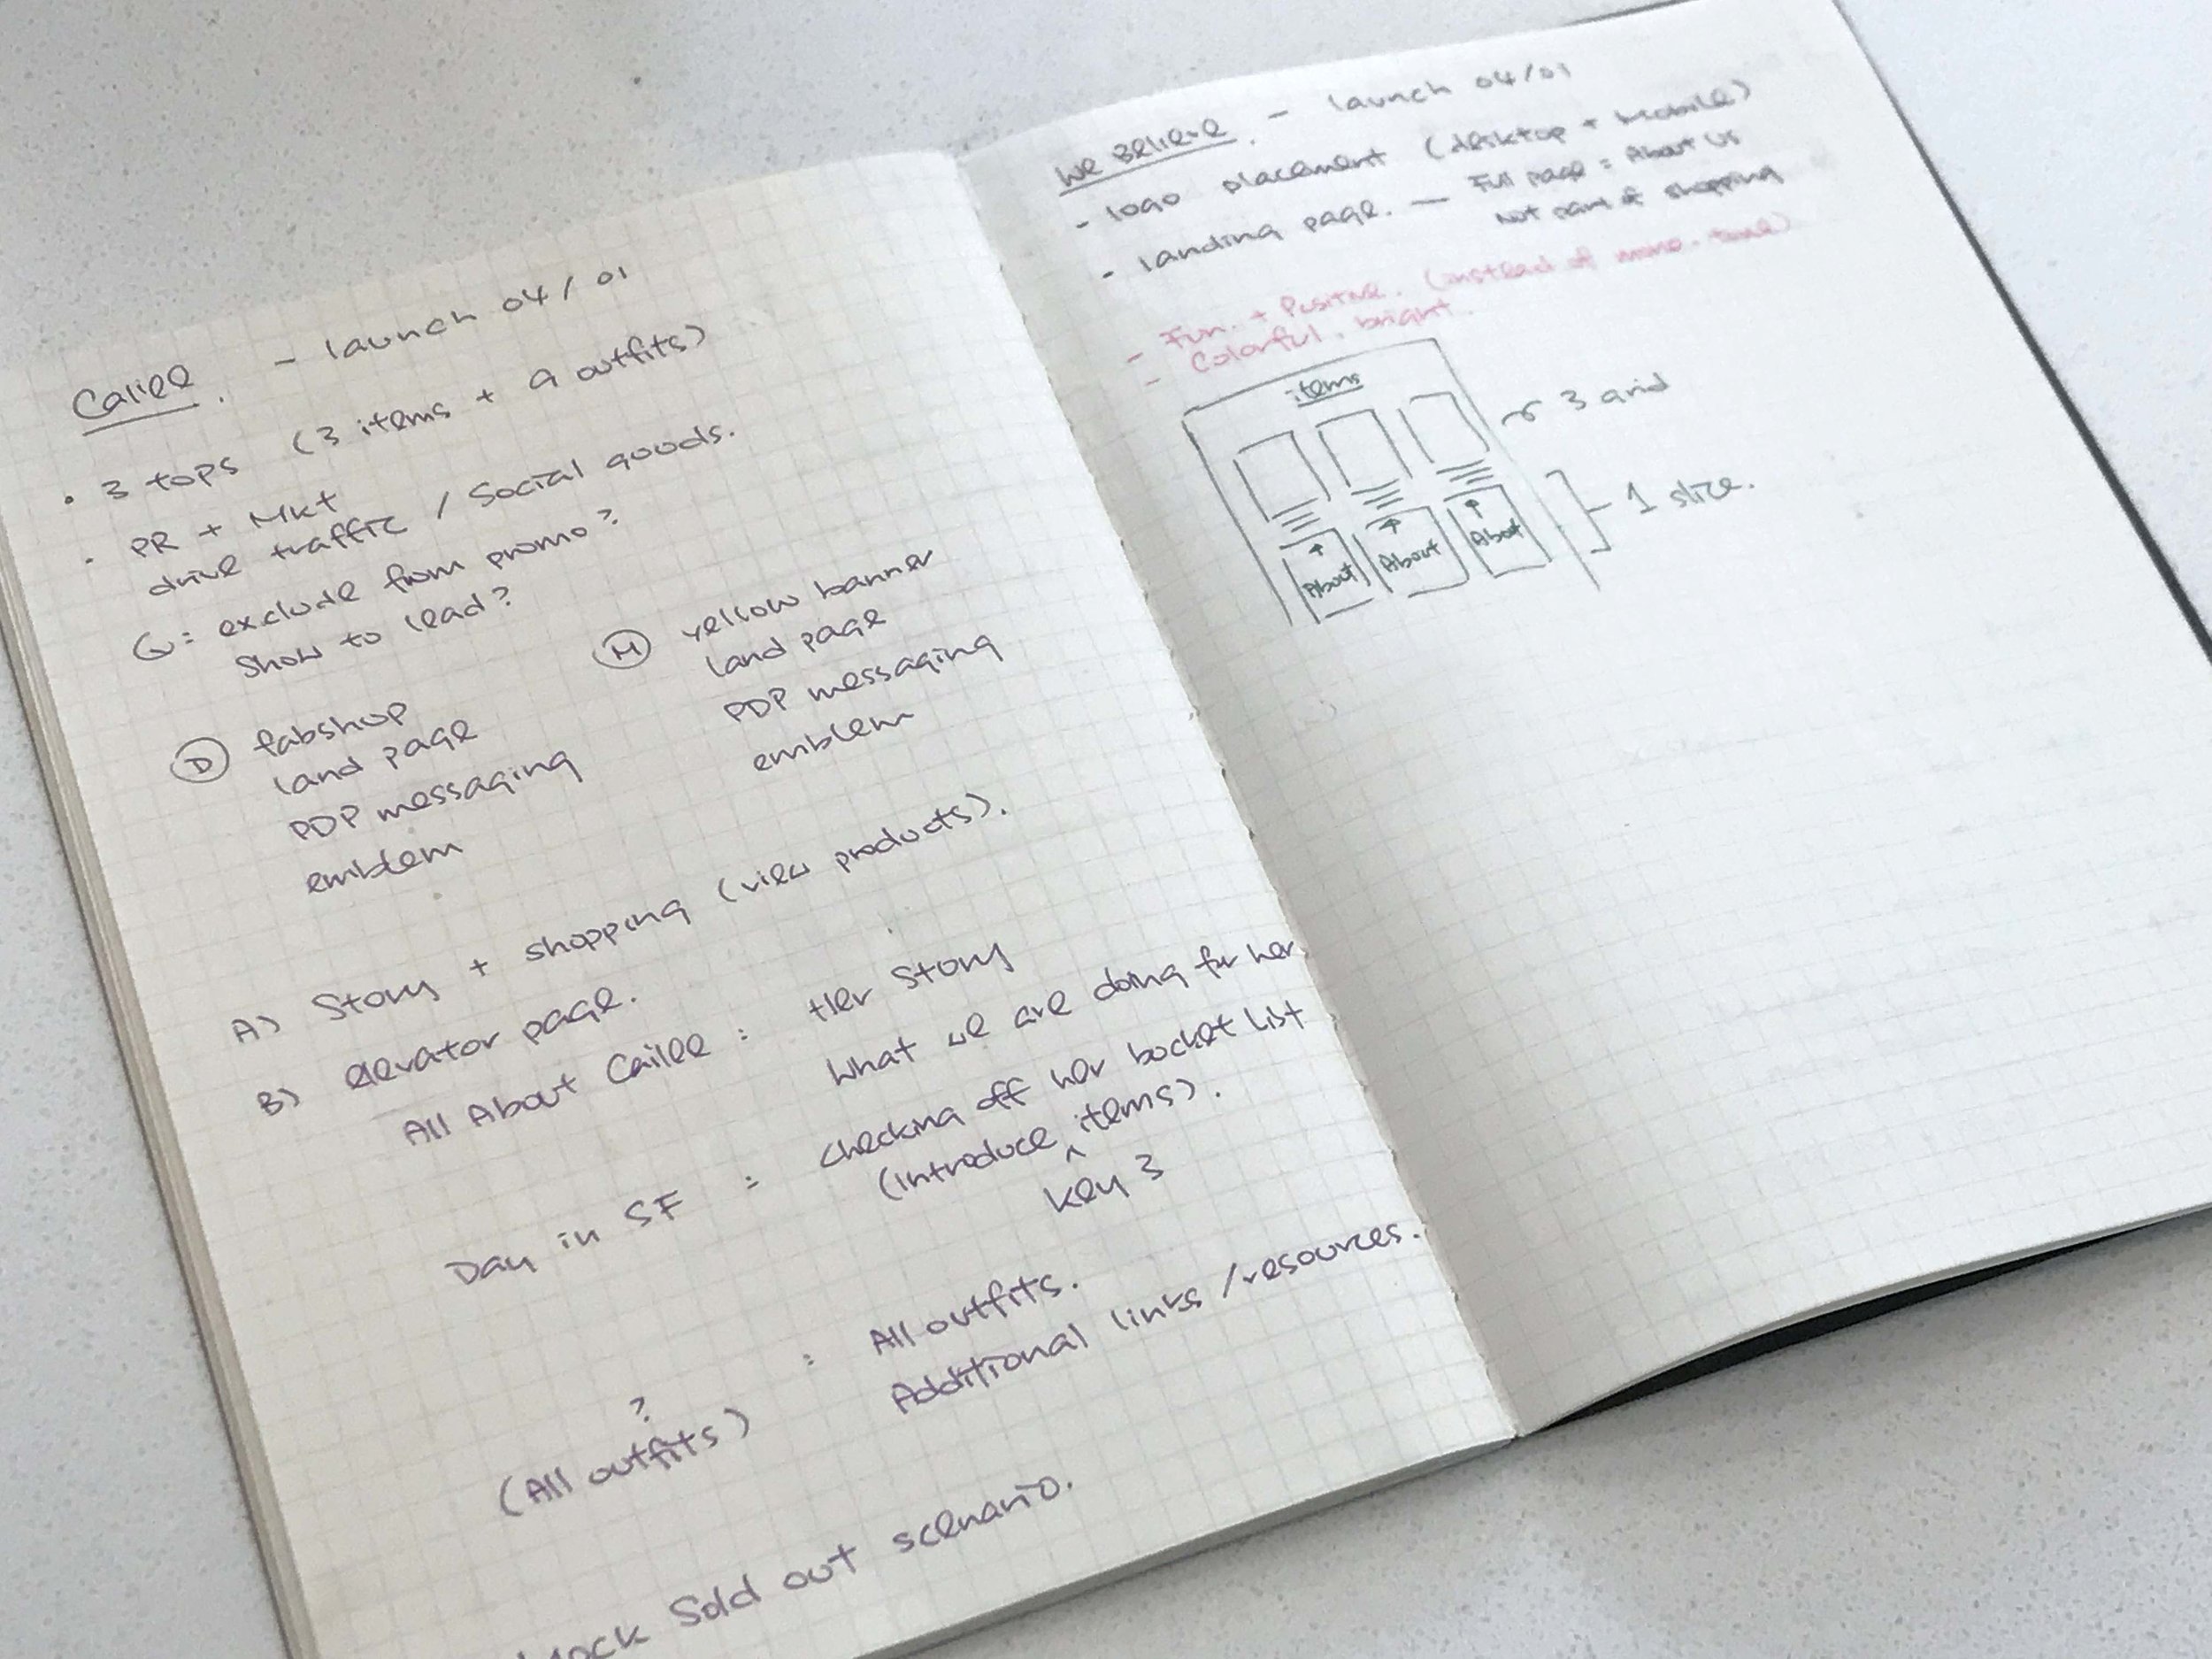 Caliee. - launch 04/01
• 3 tops (3 items + 9 outfits)
• PR + Mkt
drive traffic / Social goods.
G: exclude from promo?
Show to lead?
D fabshop
land page
PDP messaging
emblem
M yellow banner
land page
PDP messaging
emblem
A) Story + shopping (view products).
B) elevator page.
All About Cailee : Her Story
What we are doing for her.
Day in SF : Checking off her bocket list
(introduce ^ items).
key 3
?
(All outfits) : All outfits.
Additional links / resources.
Mock Sold out scenario.
We Believe. - launch 04/01
- logo placement (desktop + Mobile)
- landing page. — Full page = About Us
Not part of shopping
- Fun. + Positive. (instead of mono-tone)
- Colorful. bright.
items
3 grid
1 slice.
↑ ↑ ↑
About About About